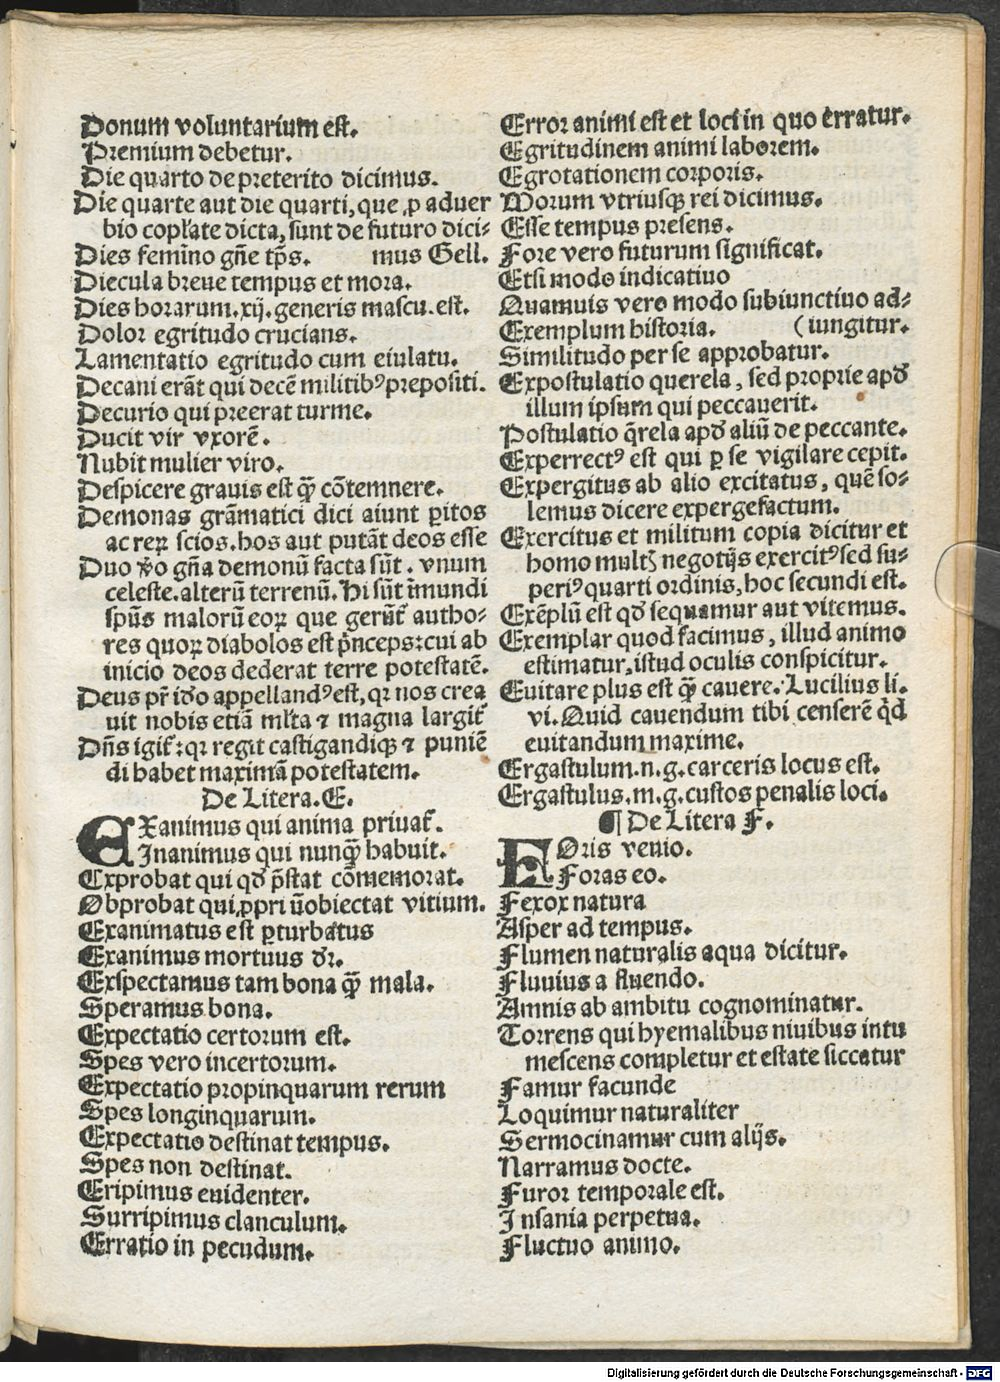 Donum voluntarium est.
Premium debetur.
Die quarto de preterito dicimus.
Die quarte aut die quarti, que ꝓ aduer
bio coplate dicta, sunt de futuro dici-
Dies femino gñe tp̃s. mus Gell.
Diecula breue tempus et mora.
Dies horarum.xij.generis mascu.est.
Dolor egritudo crucians.
Lamentatio egritudo cum eiulatu.
Decani erãt qui decẽ militibꝰ prepositi.
Decurio qui preerat turme.
Ducit vir vxorẽ.
Nubit mulier viro.
Despicere grauis est q̃ꝫ cõtemnere.
Demonas grãmatici dici aiunt ꝑitos
ac reꝝ scios.hos aut putãt deos esse
Duo ꝟo gña demonũ facta sũt. vnum
celeste.alterũ terrenũ. Hi sũt ĩmundi
spũs malorũ eoꝝ que gerũt᷑ autho-
res quoꝝ diabolos est p̃nceps: cui ab
inicio deos dederat terre potestatẽ.
Deus pr̃ iđo appellandꝰ est, qꝛ nos crea
uit nobis etiã ml̃ta ⁊ magna largit᷑
Dñs igit᷑: qꝛ regit castigandiqꝫ ⁊ puniẽ
di habet maximã potestatem.
De Litera.E.
EXanimus qui anima priuat᷑.
Inanimus qui nunq̃ꝫ habuit.
Exprobat qui qđ p̃stat cõmemorat.
Obprobat qui ꝓpri ũobiectat vitium.
Exanimatus est ꝑturbatus
Exanimus mortuus đr.
Exspectamus tam bona q̃ꝫ mala.
Speramus bona.
Expectatio certorum est.
Spes vero incertorum.
Expectatio propinquarum rerum
Spes longinquarum.
Expectatio destinat tempus.
Spes non destinat.
Eripimus euidenter.
Surripimus clanculum.
Erratio in pecudum.
Error animi est et loci in quo erratur.
Egritudinem animi laborem.
Egrotationem corporis.
Morum vtriusqꝫ rei dicimus.
Esse tempus presens.
Fore vero futurum significat.
Etsi modo indicatiuo
Quamuis vero modo subiunctiuo ad-
Exemplum historia. (iungitur.
Similitudo per se approbatur.
Expostulatio querela, sed proprie apđ
illum ipsum qui peccauerit.
Postulatio q̃rela apđ aliũ de peccante.
Experrectꝰ est qui ꝑ se vigilare cepit.
Expergitus ab alio excitatus, quẽ so-
lemus dicere expergefactum.
Exercitus et militum copia dicitur et
homo multꝭ negotijs exercitꝰ sed su-
periꝰ quarti ordinis, hoc secundi est.
Exẽplũ est qđ sequamur aut vitemus.
Exemplar quod facimus, illud animo
estimatur, istud oculis conspicitur.
Euitare plus est q̃ꝫ cauere. Lucilius li.
vi. Quid cauendum tibi censerẽ q̃d
euitandum maxime.
Ergastulum.n.g.carceris locus est.
Ergastulus.m.g.custos penalis loci.
¶ De Litera F.
FOris venio.
Foras eo.
Fexox natura
Asper ad tempus.
Flumen naturalis aqua dicitur.
Fluuius a fluendo.
Amnis ab ambitu cognominatur.
Torrens qui hyemalibus niuibus intu
mescens completur et estate siccatur
Famur facunde
Loquimur naturaliter
Sermocinamur cum alijs.
Narramus docte.
Furor temporale est.
Insania perpetua.
Fluctuo animo.
Digitalisierung gefördert durch die Deutsche Forschungsgemeinschaft - DFG